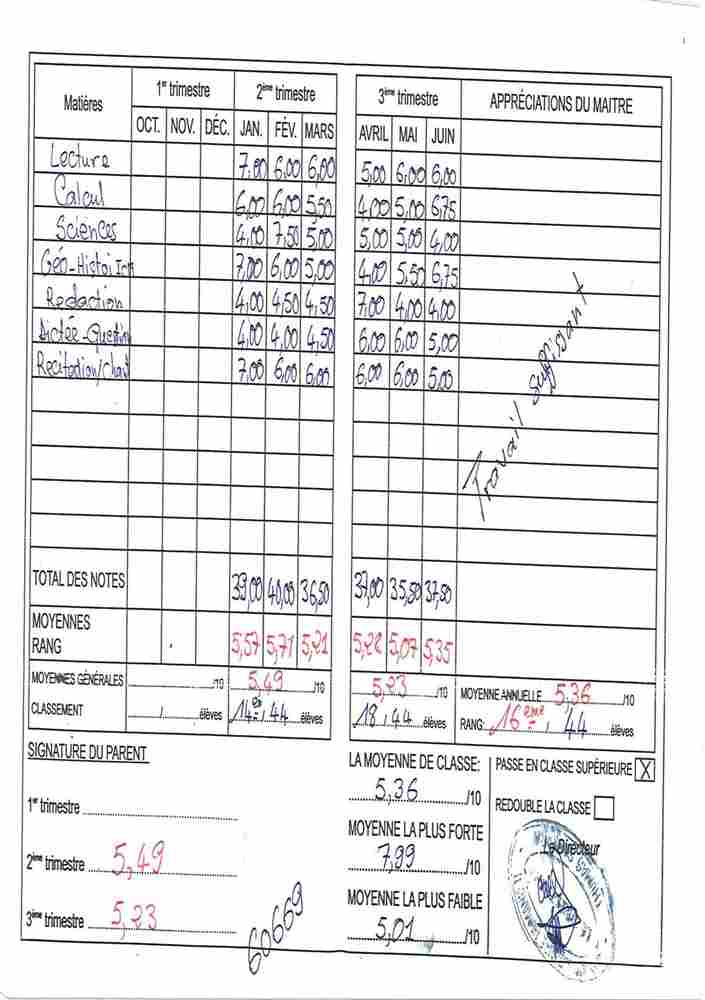 Matières 1er trimestre 2ème trimestre 3ème trimestre APPRÉCIATIONS DU MAITRE
OCT. NOV. DÉC. JAN. FÉV. MARS AVRIL MAI JUIN
Lecture 7,00 6,00 6,00 5,00 6,00 6,00
Calcul 6,00 6,00 5,50 4,00 5,00 6,75
Sciences 4,00 7,50 5,00 5,00 5,00 4,00
Géo-Histoire 7,00 6,00 5,00 4,00 5,50 6,75
Redaction 4,00 4,50 4,50 7,00 4,00 4,00
Dictée-Question 4,00 4,00 4,50 6,00 6,00 5,00
Recitation/chant 7,00 6,00 6,00 6,00 6,00 5,00
Travail suffisant
TOTAL DES NOTES 39,00 40,00 36,50 37,00 35,50 37,50
MOYENNES
RANG 5,57 5,71 5,21 5,28 5,07 5,35
MOYENNES GÉNÉRALES /10 5,49 /10 5,23 /10 MOYENNE ANNUELLE 5,36 /10
CLASSEMENT / élèves 14e, 44 élèves 18, 44 élèves RANG 16ème, 44 élèves
SIGNATURE DU PARENT
1er trimestre
2ème trimestre 5,49
3ème trimestre 5,23
60669
LA MOYENNE DE CLASSE:
5,36 /10
MOYENNE LA PLUS FORTE
7,99 /10
MOYENNE LA PLUS FAIBLE
5,01 /10
PASSE EN CLASSE SUPÉRIEURE X
REDOUBLE LA CLASSE
Le Directeur